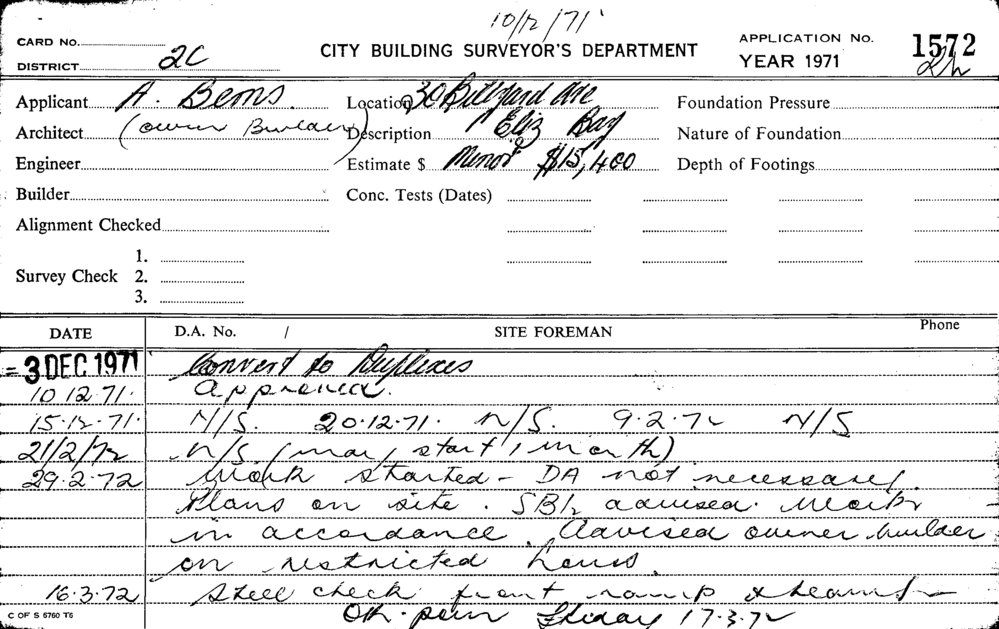 10/12/71
CARD No.
DISTRICT 2C
CITY BUILDING SURVEYOR'S DEPARTMENT
APPLICATION No. 1572
YEAR 1971
Applicant A. Bems. Location 30 Billyard Ave Foundation Pressure
Architect (owner Builder) Description Eliz Bay Nature of Foundation
Engineer Estimate $ Minor $15,400 Depth of Footings
Builder Conc. Tests (Dates)
Alignment Checked
Survey Check 1.
2.
3.
DATE D.A. No. / SITE FOREMAN Phone
- 3 DEC 1971 Convert to Duplexes
10 12.71. Approved.
15.12.71. N/S. 20.12.71. N/S. 9.2.72 N/S
21/2/72 N/S. (may start 1 month)
29.2.72 Work started - DA not necessary.
Plans on site. SBI advised. Work
in accordance. Advised owner builder
on restricted hours.
16.3.72 Steel check front ramp & beams -
Ok. pour Friday 17.3.72
C OF S 5760 T6